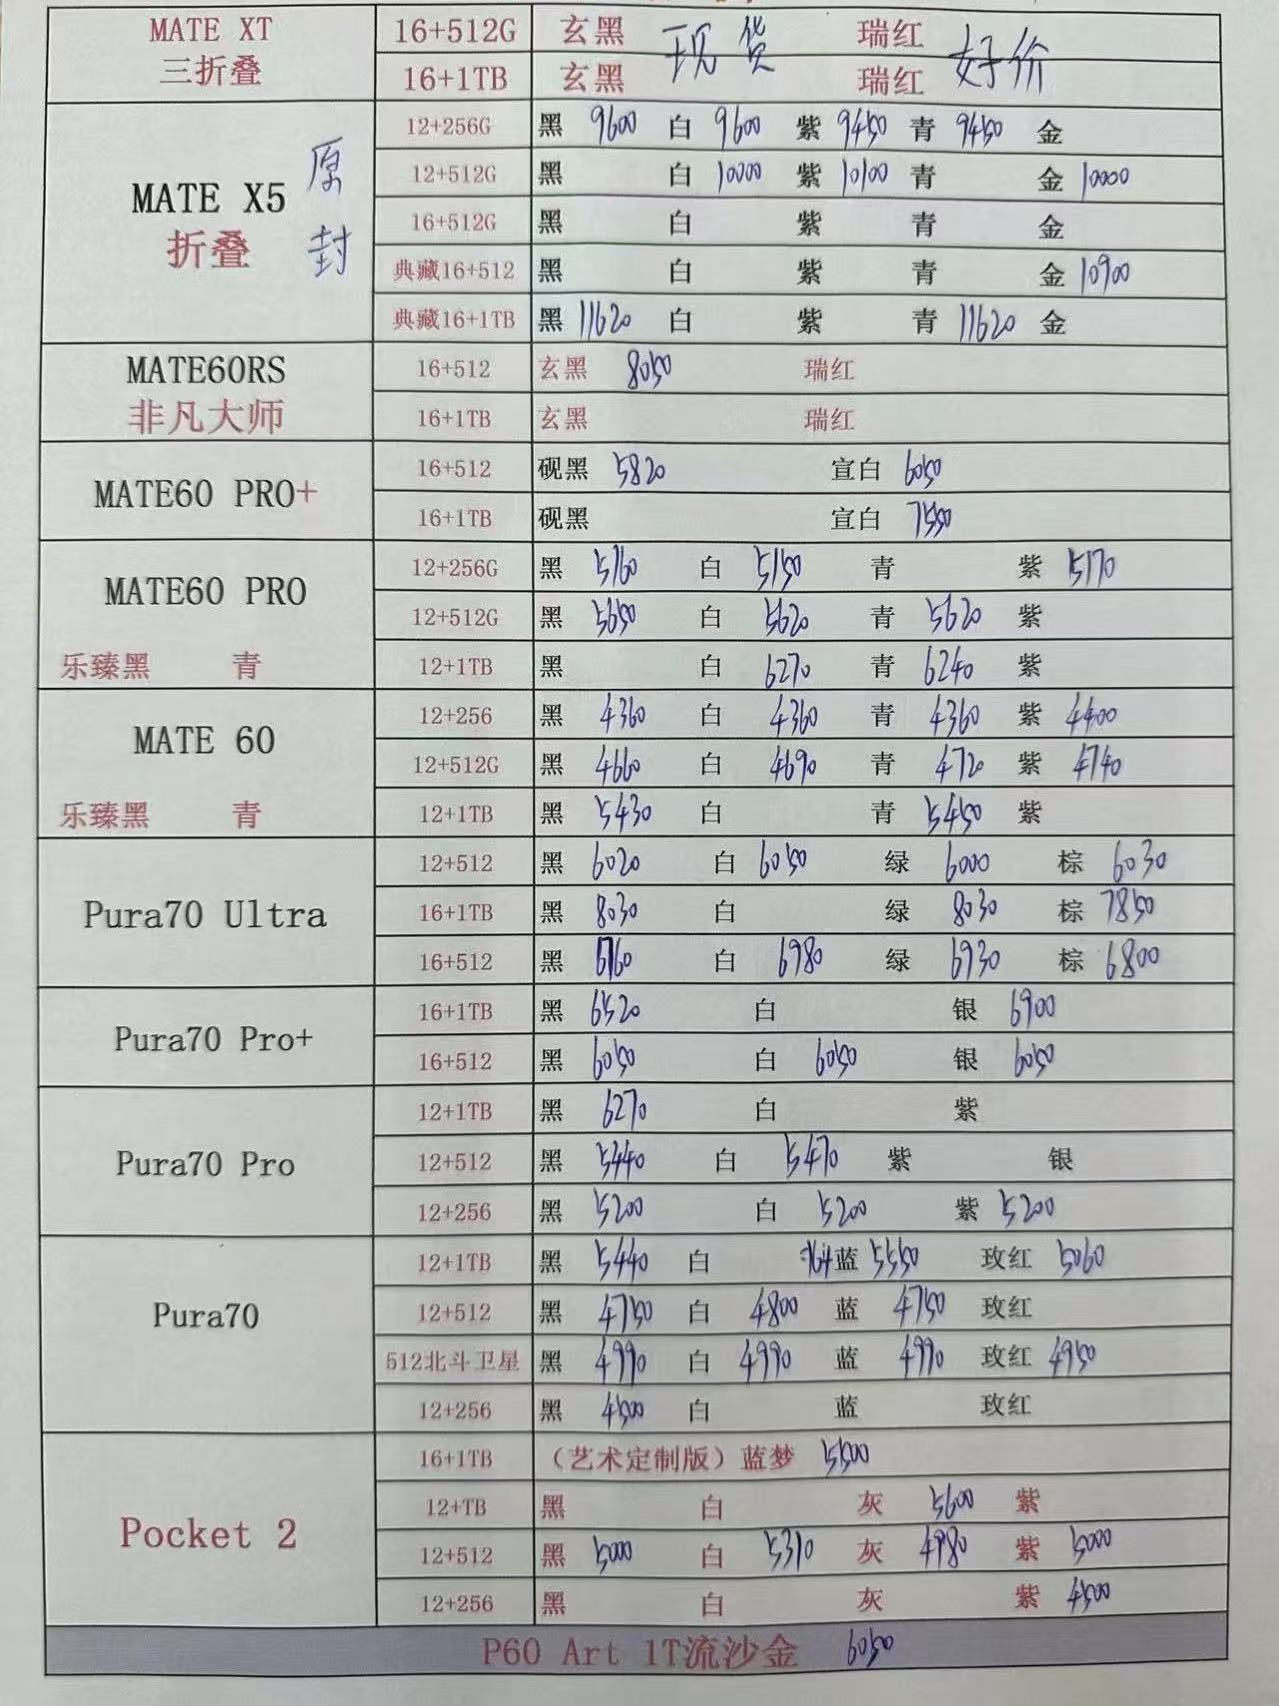 MATE XT 16+512G 玄黑 现货 瑞红 好价
三折叠 16+1TB 玄黑 瑞红
12+256G 黑 9600 白 9600 紫 9450 青 9450 金
MATE X5 原封 12+512G 黑 白 10000 紫 10100 青 金 10000
折叠 16+512G 黑 白 紫 青 金
典藏16+512 黑 白 紫 青 金 10900
典藏16+1TB 黑 11620 白 紫 青 11620 金
MATE60RS 16+512 玄黑 8050 瑞红
非凡大师 16+1TB 玄黑 瑞红
MATE60 PRO+ 16+512 砚黑 5820 宣白 6050
16+1TB 砚黑 宣白 7550
MATE60 PRO 12+256G 黑 5160 白 5150 青 紫 5170
12+512G 黑 5650 白 5620 青 5620 紫
乐臻黑 青 12+1TB 黑 白 6270 青 6240 紫
MATE 60 12+256 黑 4360 白 4360 青 4360 紫 4400
12+512G 黑 4660 白 4690 青 4720 紫 4740
乐臻黑 青 12+1TB 黑 5430 白 青 5450 紫
12+512 黑 6020 白 6050 绿 6000 棕 6030
Pura70 Ultra 16+1TB 黑 8030 白 绿 8030 棕 7850
16+512 黑 6760 白 6980 绿 6930 棕 6800
Pura70 Pro+ 16+1TB 黑 6520 白 银 6900
16+512 黑 6050 白 6050 银 6050
12+1TB 黑 6270 白 紫
Pura70 Pro 12+512 黑 5440 白 5470 紫 银
12+256 黑 5200 白 5200 紫 5200
12+1TB 黑 5440 白 北斗蓝 5550 玫红 5060
Pura70 12+512 黑 4750 白 4800 蓝 4750 玫红
512北斗卫星 黑 4990 白 4990 蓝 4990 玫红 4950
12+256 黑 4500 白 蓝 玫红
16+1TB （艺术定制版）蓝梦 5500
Pocket 2 12+TB 黑 白 灰 5600 紫
12+512 黑 5000 白 5310 灰 4980 紫 5000
12+256 黑 白 灰 紫 4500
P60 Art 1T流沙金 6050